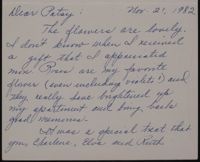 Dear Patsy: Nov. 21, 1982
The flowers are lovely.
I don't know when I received
a gift that I appreciated
more. Roses are my favorite
flower (even including violets!) and
they really have brightened up
my apartment and bring back
good memories.
It was a special treat that
you, Charlene, Elsie and Keith